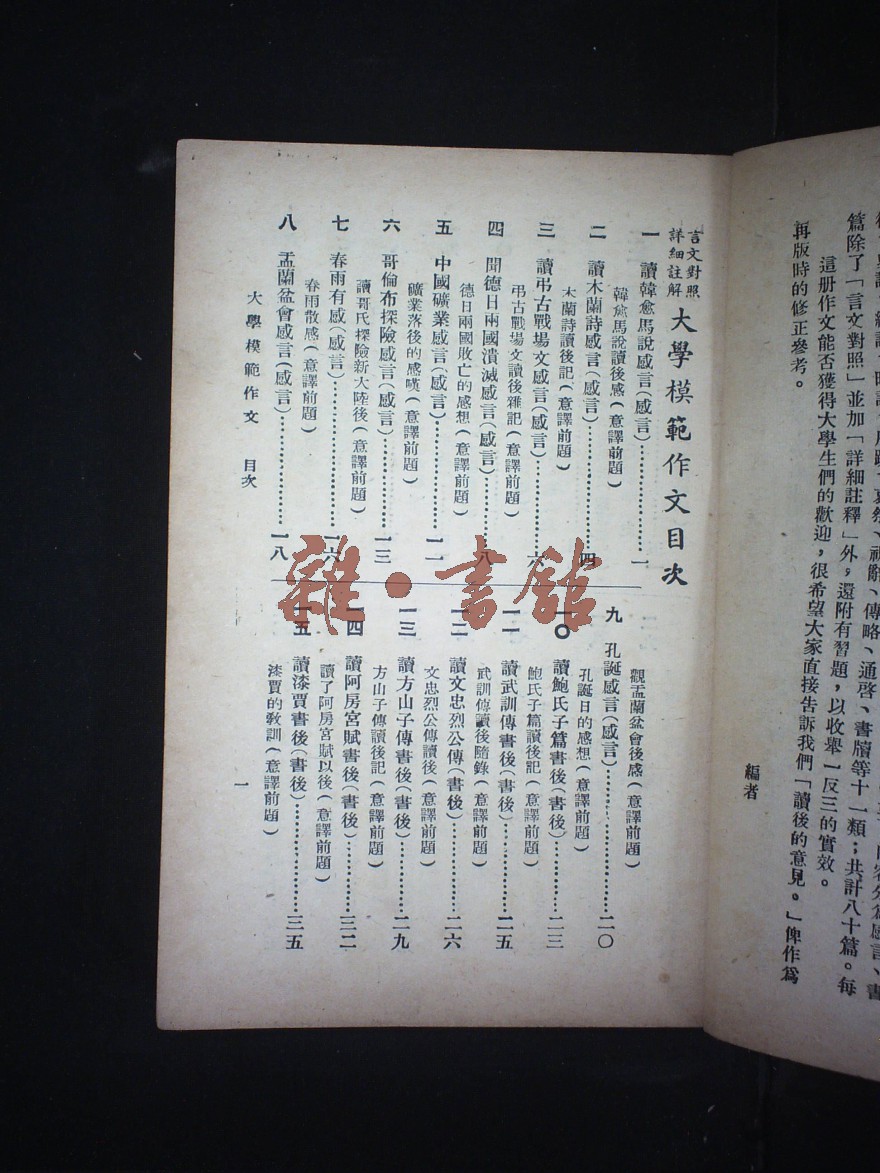 內容分爲感言、書
祝辭、傳略、通啓、書牘等十一類；共計八十篇。每
篇除了「言文對照」並加「詳細註釋」外，還附有習題，以收舉一反三的實效。
這册作文能否獲得大學生們的歡迎，很希望大家直接告訴我們「讀後的意見。」俾作爲
再版時的修正參考。
編者
言文對照
詳細註解
大學模範作文目次
一 讀韓愈馬說感言(感言)…………一
韓愈馬說讀後感(意譯前題)
二 讀木蘭詩感言(感言)…………四
木蘭詩讀後記(意譯前題)
三 讀弔古戰場文感言(感言)…………六
弔古戰場文讀後雜記(意譯前題)
四 聞德日兩國潰滅感言(感言)…………八
德日兩國敗亡的感想(意譯前題)
五 中國礦業感言(感言)…………一一
礦業落後的感嘆(意譯前題)
六 哥倫布探險感言(感言)…………一三
讀哥氏探險新大陸後(意譯前題)
七 春雨有感(感言)…………一六
春雨散感(意譯前題)
八 盂蘭盆會感言(感言)…………一八
觀盂蘭盆會後感(意譯前題)
九 孔誕感言(感言)…………二〇
孔誕日的感想(意譯前題)
一〇 讀鮑氏子篇書後(書後)…………二三
鮑氏子篇讀後記(意譯前題)
一一 讀武訓傳書後(書後)…………二五
武訓傳讀後隨錄(意譯前題)
一二 讀文忠烈公傳(書後)…………二六
文忠烈公傳讀後(意譯前題)
一三 讀方山子傳書後(書後)…………二九
方山子傳讀後記(意譯前題)
一四 讀阿房宮賦書後(書後)…………三二
讀了阿房宮賦以後(意譯前題)
一五 讀漆賈書後(書後)…………三五
漆賈的教訓(意譯前題)
大學模範作文 目次
一
雜·書館